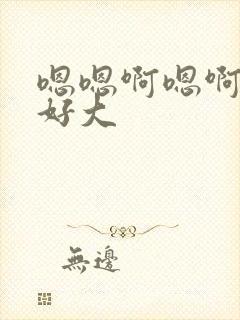 嗯嗯啊嗯啊
好大
無邊